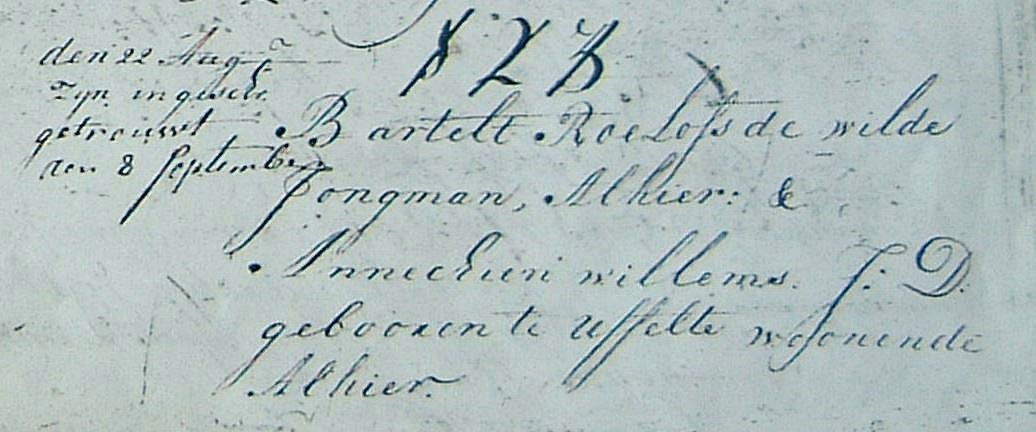 den 22 Aug
Zyn ingeschr.
getrouwt
den 8 September
Bartelt Roelofs de wilde
Jongman, Alhier: &
Annechien willems. J: D:
gebooren te Uffelte woonende
Alhier.